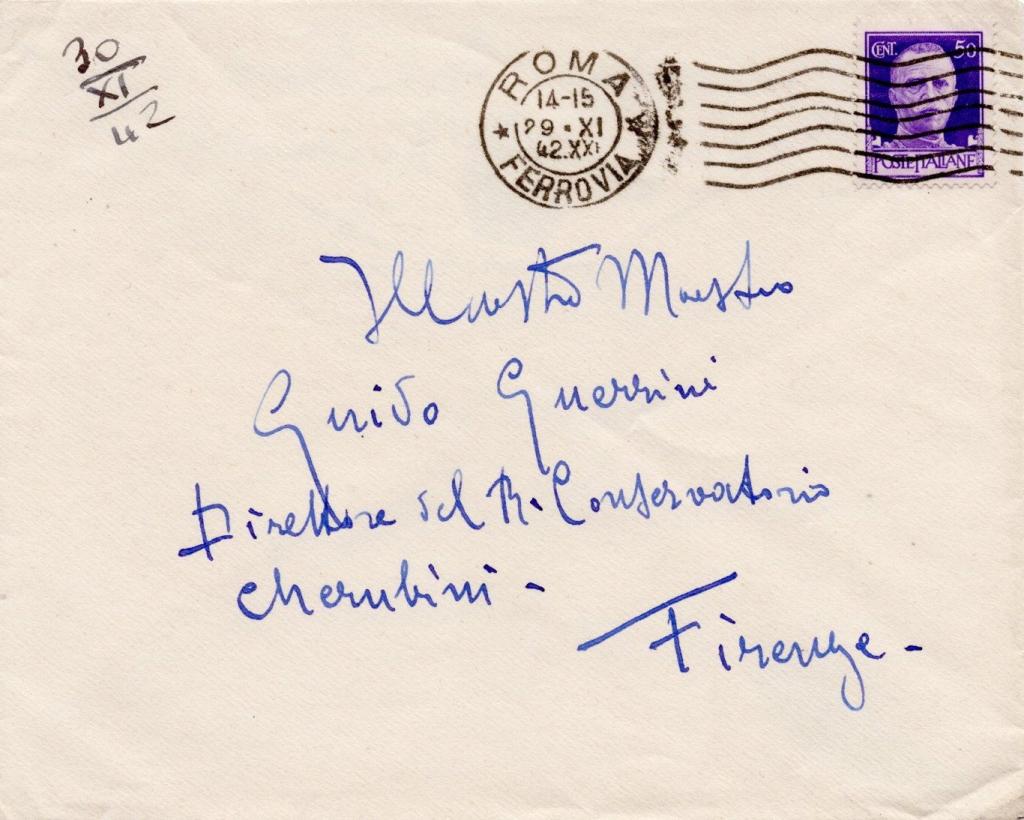 30
XI
42
ROMA
14-15
29·XI
42.XXI
FERROVIA
CENT. 50
POSTE ITALIANE
Illustre Maestro
Guido Guerrini
Direttore del R. Conservatorio
Cherubini -
Firenze -